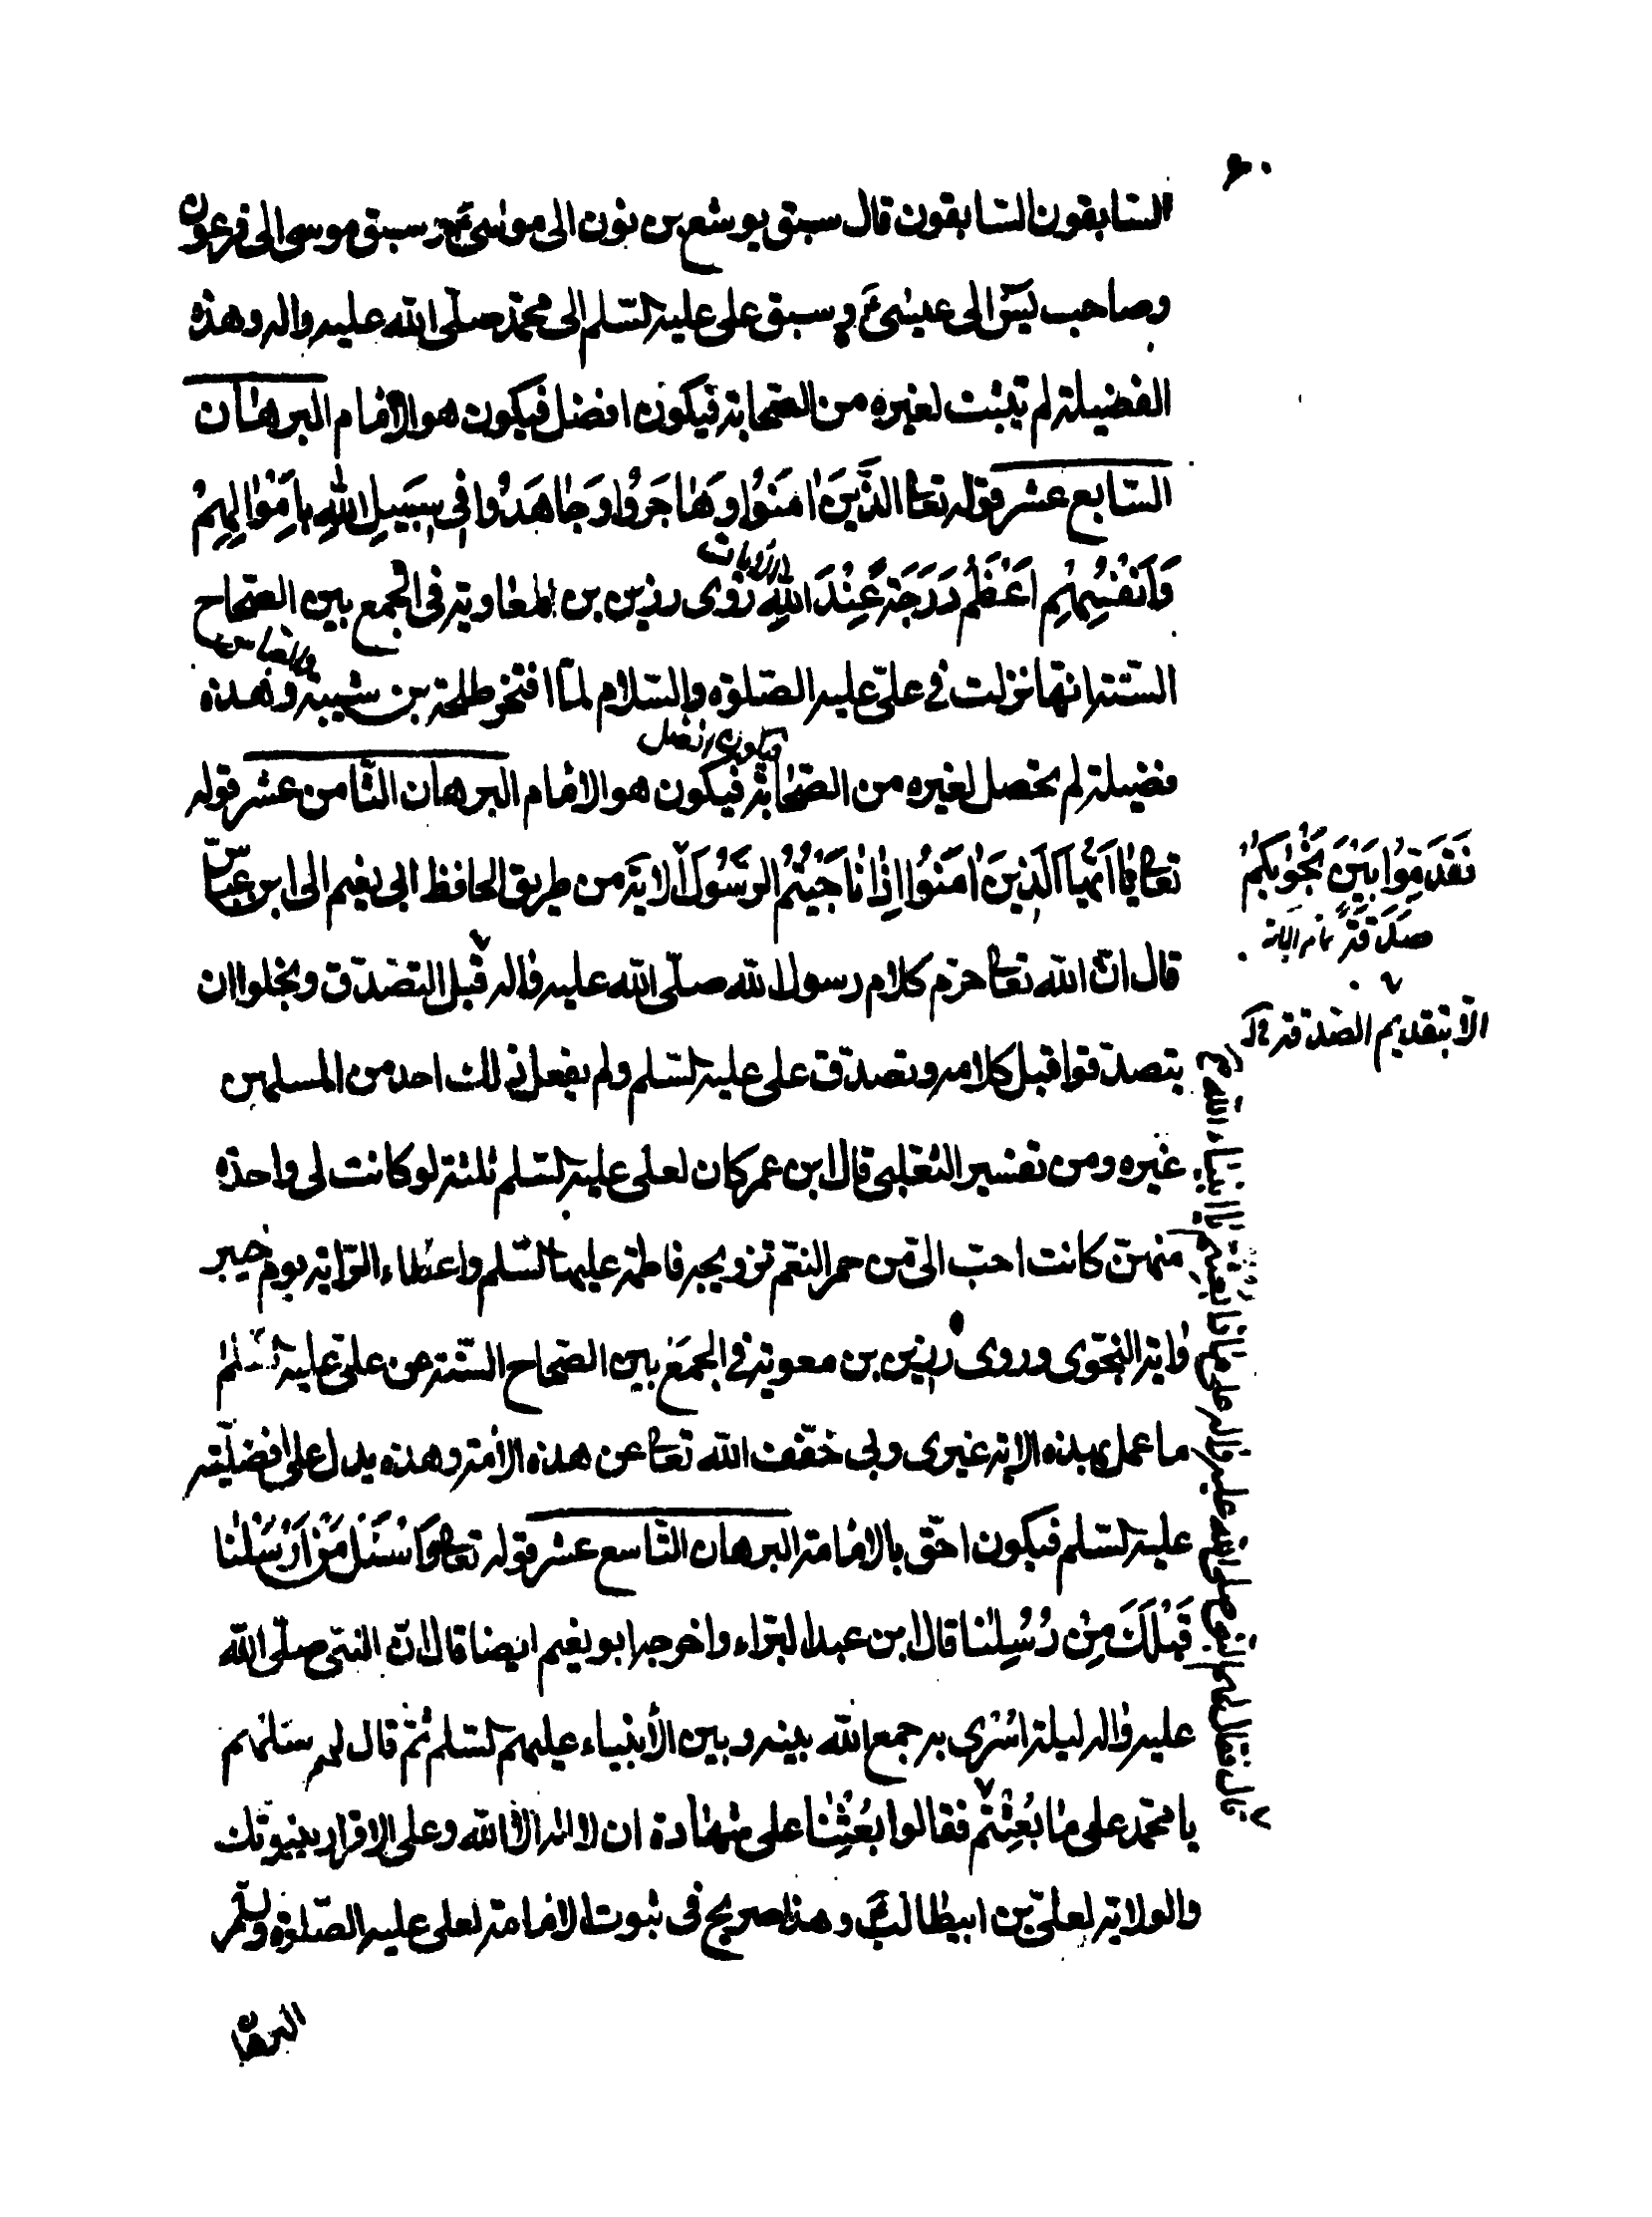 ٦٠
السابقون السابقون قال سبق يوشع بن نون الى موسى ع و سبق موسى الى فرعون
وصاحب يس الى عيسى ع و سبق على عليه السلم الى محمد صلى الله عليه واله وهذه
الفضيلة لم تثبت لغيره من الصحابة فيكون افضل فيكون هو الامام البرهان
السابع عشر قوله تعا الَّذينَ امَنُوا وَهاجَروُا وَجاهَدوُا فى سَبيلِ اللهِ بِاَمْوالِهِمْ
وَاَنْفُسِهِمْ اَعْظَمُ دَرَجَةً عِنْدَ اللهِ الايات روى رزين بن المعاوية فى الجمع بين الصحاح
الستة انها نزلت فى على عليه الصلوة والسلام لما افتخر طلحة بن شيبة والعباس وهذه
فضيلة لم تحصل لغيره من الصحابة فيكون افضل فيكون هو الامام البرهان الثامن عشر قوله
تعا يا اَيُّهَا الَّذينَ امَنُوا اِذا ناجَيْتُمُ الرَّسُولَ الاية من طريق الحافظ ابى نعيم الى ابن عباس
فَقَدِّمُوا بَيْنَ يَدَىْ نَجْويكُمْ
صَدَقَةً تمام الاية
قال ان الله تعا حرم كلام رسول الله صلى الله عليه واله قبل التصدق وبخلوا ان
الا بتقديم الصدقة
يتصدقوا قبل كلامه وتصدق على عليه السلم ولم يفعل ذلك احد من المسلمين
غيره ومن تفسير الثعلبى قال ابن عمر كان لعلى عليه السلم ثلثة لو كانت لى واحدة
منهن كانت احب الى من حمر النعم تزويجه فاطمة عليها السلم واعطاء الراية يوم خيبر
واية النجوى وروى رزين بن معوية فى الجمع بين الصحاح الستة عن على عليه السلم
ما عمل بهذه الاية غيرى وبى خفف الله تعا عن هذه الامة وهذه يدل على افضليته
عليه السلم فيكون احق بالامامة البرهان التاسع عشر قوله تعا وَاسْئَلْ مَنْ اَرْسَلْنا
قَبْلَكَ مِنْ رُسُلِنا قال ابن عبد البراء واخرجه ابو نعيم ايضا قال ان النبى صلى الله
عليه واله ليلة اسرى به جمع الله بينه وبين الأنبياء عليهم السلم ثم قال له سلهم
يا محمد على ما بُعِثْتُم فقالوا بُعِثْنا على شهادة ان لا اله الا الله وعلى الاقرار بنبوتك
قال فقال لهم النبى صلى الله عليه واله على ماذا بعثتم يا انبياء الله
والولاية لعلى بن ابيطالب ع وهذا صريح فى ثبوت الامامة لعلى عليه الصلوة والسلم
البرهان